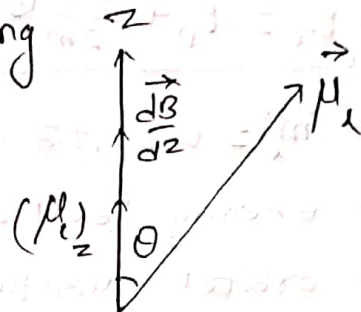 ng
z
dB⃗/dz
μ⃗_l
(μ_l)_z
θ